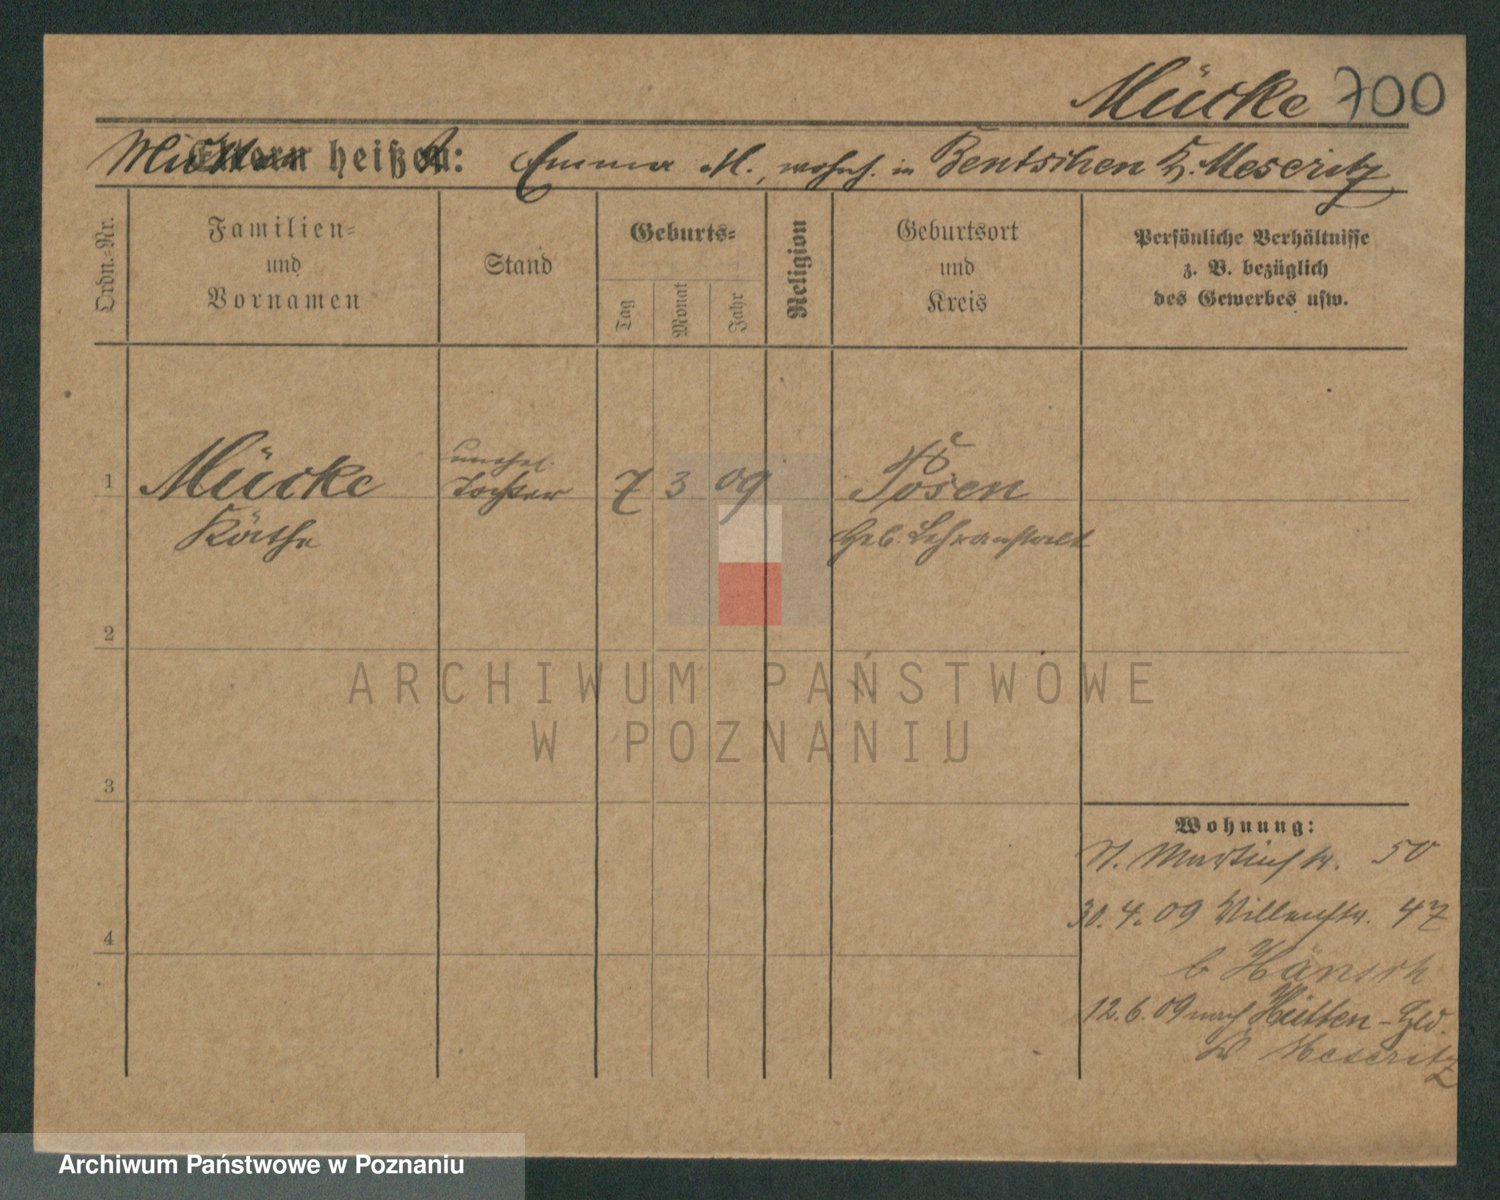 Mücke 700
Mutter heißt: Emma M., wohnh. in Bentschen K. Meseritz
Ordn.-Nr.
Familien-
und
Vornamen
Stand
Geburts-
Tag
Monat
Jahr
Religion
Geburtsort
und
Kreis
Persönliche Verhältnisse
z. B. bezüglich
des Gewerbes usw.
1
Mücke
Käthe
unehel.
Tochter
7 3 09
Posen
Heb. Lehranstalt
2
3
4
Wohnung:
St. Martinstr. 50
30.4.09 Villenstr. 47
b Hänsch
12.6.09 nach Hütten-Hld.
Meseritz
ARCHIWUM PAŃSTWOWE
W POZNANIU
Archiwum Państwowe w Poznaniu